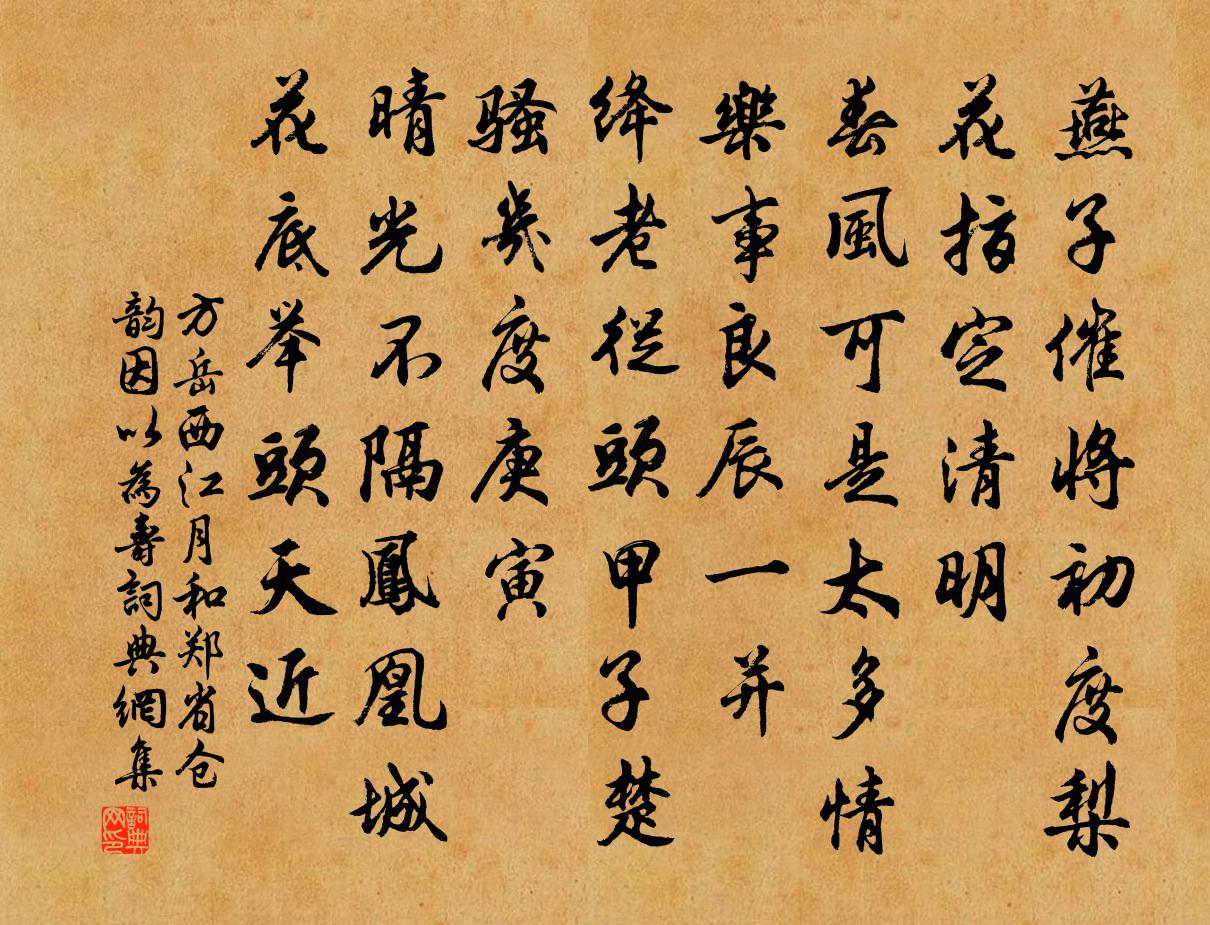 燕子催将初度梨
花指定清明
春風可是太多情
樂事良辰一并
绛老従頭甲子楚
騷幾度庚寅
晴光不隔鳳凰城
花底举頭天近
方岳西江月和郑省仓
韵因以為壽詞典網集
詞典
网印